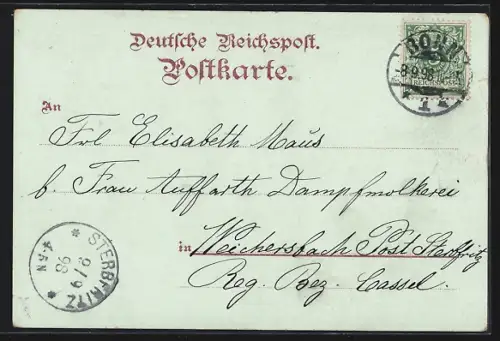 Deutsche Reichspost.
Postkarte.
BONN
8.9.98
1
An
Frl Elisabeth Maus
b. Frau Auffarth Dampfmolkerei
in Weichersbach Post Sterbfritz
Reg. Bez. Cassel.
STERBFRITZ
9/9
98